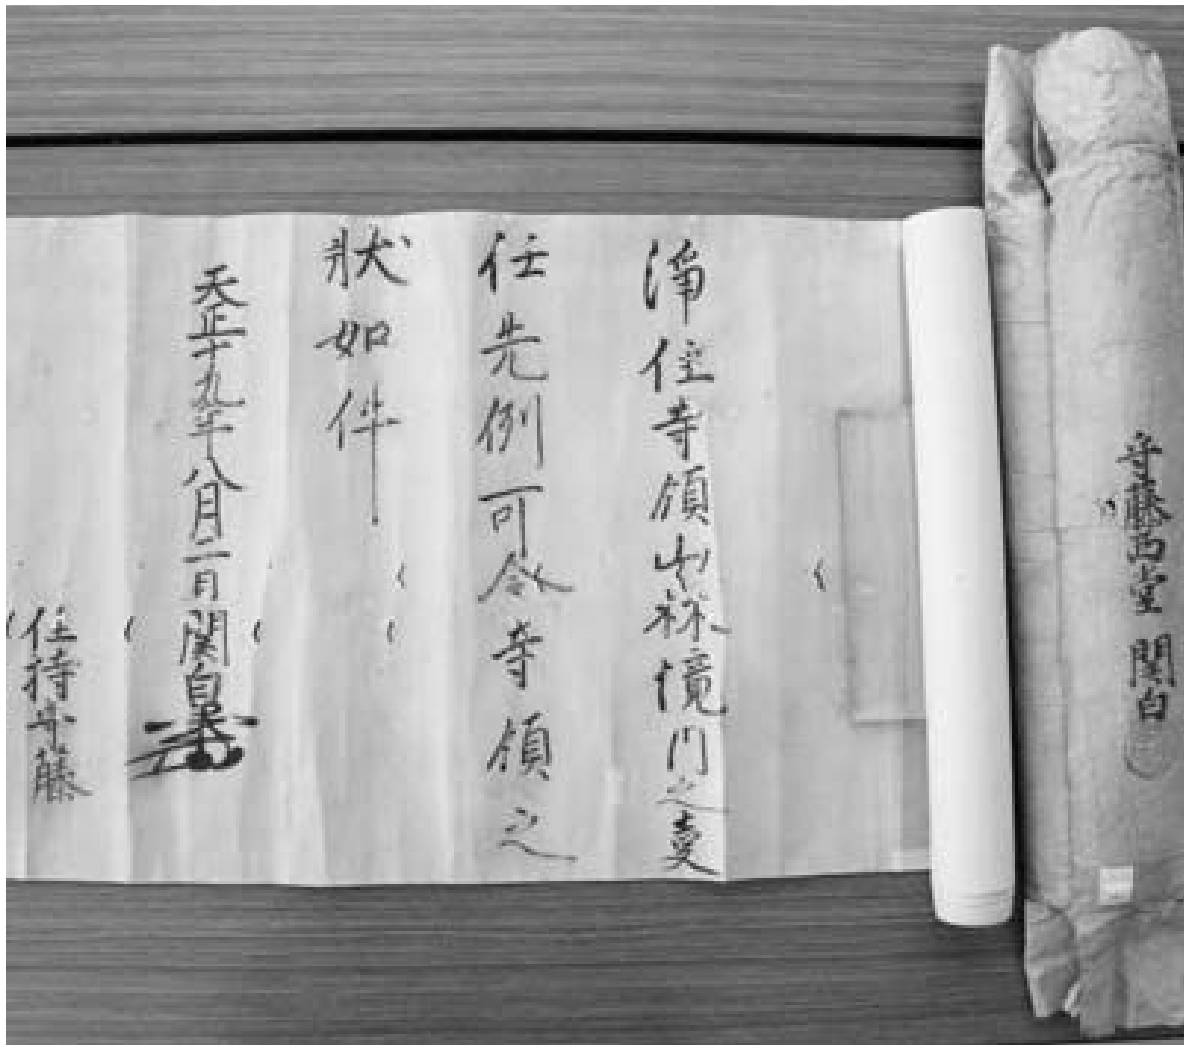 藤西堂 関白
淨住寺領山林境門之叓
任先例可令寺領之
狀如件
天正十九年八月二日関白
住持藤